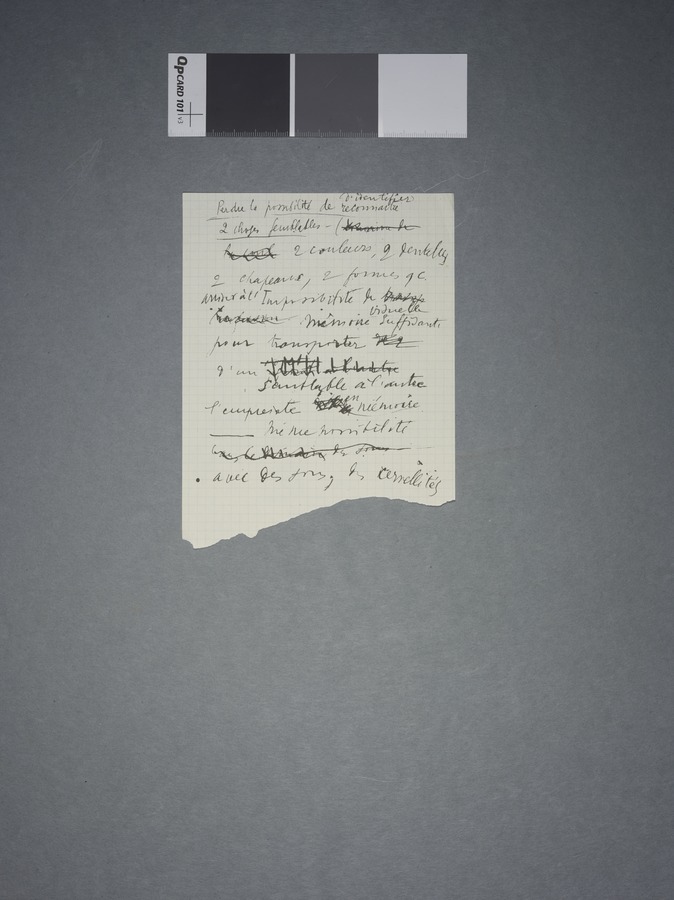 QPCARD 101 v3
d'identifier
Perdre la possibilité de reconnaître
2 choses semblables – (
2 couleurs, 2 dentelles
2 chapeaux, 2 formes qc.
arriver à l'Impossibilité de
mémoire visuelle suffisante
pour transporter
d'un
semblable à l'autre
l'empreinte en mémoire
Même possibilité
avec des sons, des cervellités